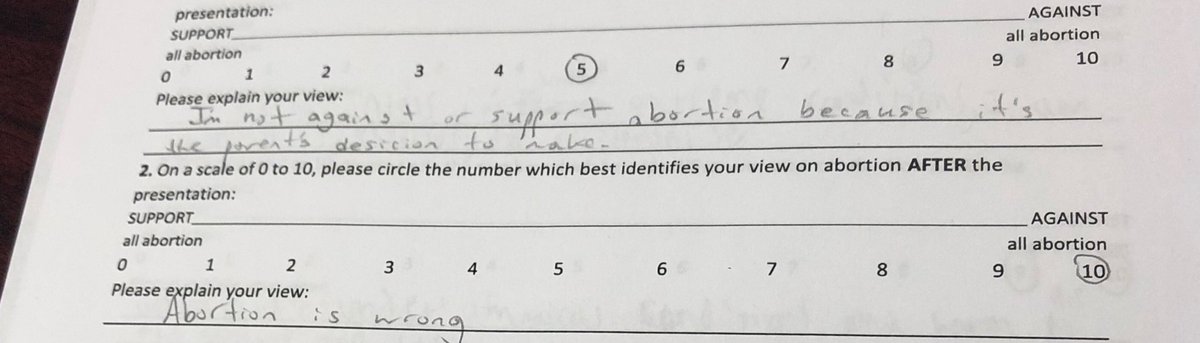 presentation:
SUPPORT AGAINST
all abortion all abortion
0 1 2 3 4 5 6 7 8 9 10
Please explain your view:
I'm not against or support abortion because it's
the parent's desicion to make.
2. On a scale of 0 to 10, please circle the number which best identifies your view on abortion AFTER the
presentation:
SUPPORT AGAINST
all abortion all abortion
0 1 2 3 4 5 6 7 8 9 10
Please explain your view:
Abortion is wrong